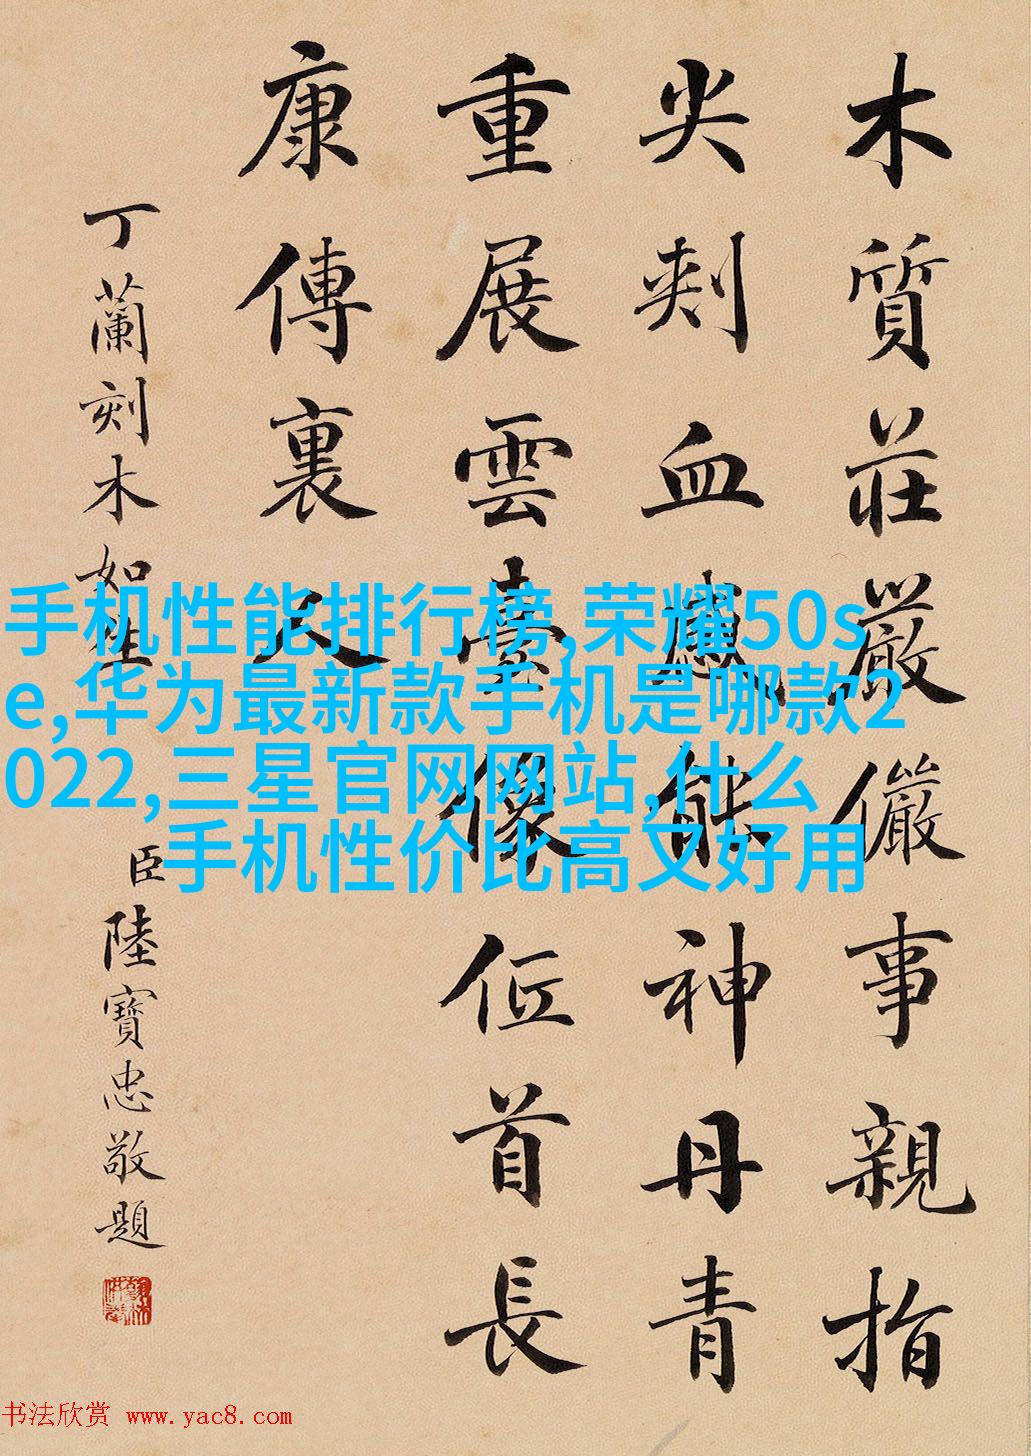 木質莊嚴儼事親指
尖刾血應能神丹青
重展雲臺像位首長
康傳裏人
丁蘭刻木如生
臣陸寶忠敬題
手机性能排行榜,荣耀50s
e,华为最新款手机是哪款2
022,三星官网网站,什么
手机性价比高又好用
书法欣赏 www.yac8.com